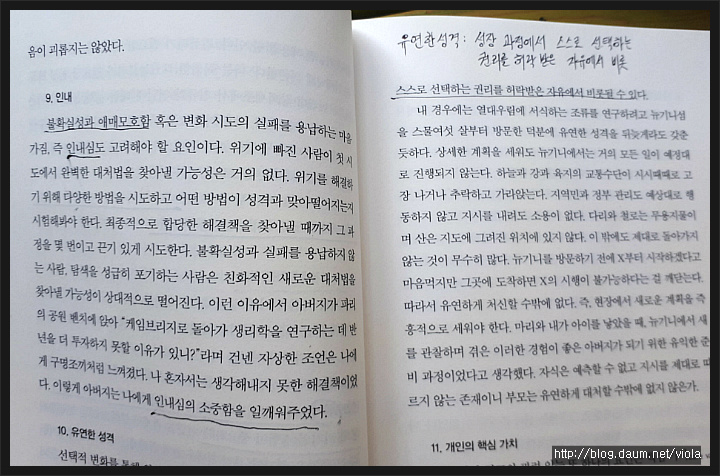 음이 괴롭지는 않았다.
9. 인내
불확실성과 애매모호함 혹은 변화 시도의 실패를 용납하는 마음
가짐, 즉 인내심도 고려해야 할 요인이다. 위기에 빠진 사람이 첫 시
도에서 완벽한 대처법을 찾아낼 가능성은 거의 없다. 위기를 해결하
기 위해 다양한 방법을 시도하고 어떤 방법이 성격과 맞아떨어지는지
시험해봐야 한다. 최종적으로 합당한 해결책을 찾아낼 때까지 그 과
정을 몇 번이고 끈기 있게 시도한다. 불확실성과 실패를 용납하지 않
는 사람, 탐색을 성급히 포기하는 사람은 친화적인 새로운 대처법을
찾아낼 가능성이 상대적으로 떨어진다. 이런 이유에서 아버지가 파리
의 공원 벤치에 앉아 “케임브리지로 돌아가 생리학을 연구하는 데 반
년을 더 투자하지 못할 이유가 있니?”라며 건넨 자상한 조언은 나에
게 구명조끼처럼 느껴졌다. 나 혼자서는 생각해내지 못한 해결책이었
다. 이렇게 아버지는 나에게 인내심의 소중함을 일깨워주었다.
10. 유연한 성격
선택적 변화를 통해
유연한 성격 : 성장 과정에서 스스로 선택하는
권리를 허락 받은 자유에서 비롯
스스로 선택하는 권리를 허락받은 자유에서 비롯될 수 있다.
내 경우에는 열대우림에 서식하는 조류를 연구하려고 뉴기니섬
을 스물여섯 살부터 방문한 덕분에 유연한 성격을 뒤늦게라도 갖춘
듯하다. 상세한 계획을 세워도 뉴기니에서는 거의 모든 일이 예정대
로 진행되지 않는다. 하늘과 강과 육지의 교통수단이 시시때때로 고
장 나거나 추락하고 가라앉는다. 지역민과 정부 관리도 예상대로 행
동하지 않고 지시를 내려도 소용이 없다. 다리와 철로는 무용지물이
며 산은 지도에 그려진 위치에 있지 않다. 이 밖에도 제대로 돌아가지
않는 것이 무수히 많다. 뉴기니를 방문하기 전에 X부터 시작하겠다고
마음먹지만 그곳에 도착하면 X의 시행이 불가능하다는 걸 깨닫는다.
따라서 유연하게 처신할 수밖에 없다. 즉, 현장에서 새로운 계획을 즉
흥적으로 세워야 한다. 마리와 내가 아이를 낳았을 때, 뉴기니에서 새
를 관찰하며 겪은 이러한 경험이 좋은 아버지가 되기 위한 유익한 준
비 과정이었다고 생각했다. 자식은 예측할 수 없고 지시를 제대로 따
르지 않는 존재이니 부모는 유연하게 대처할 수밖에 없지 않은가.
11. 개인의 핵심 가치
http://blog.daum.net/viola